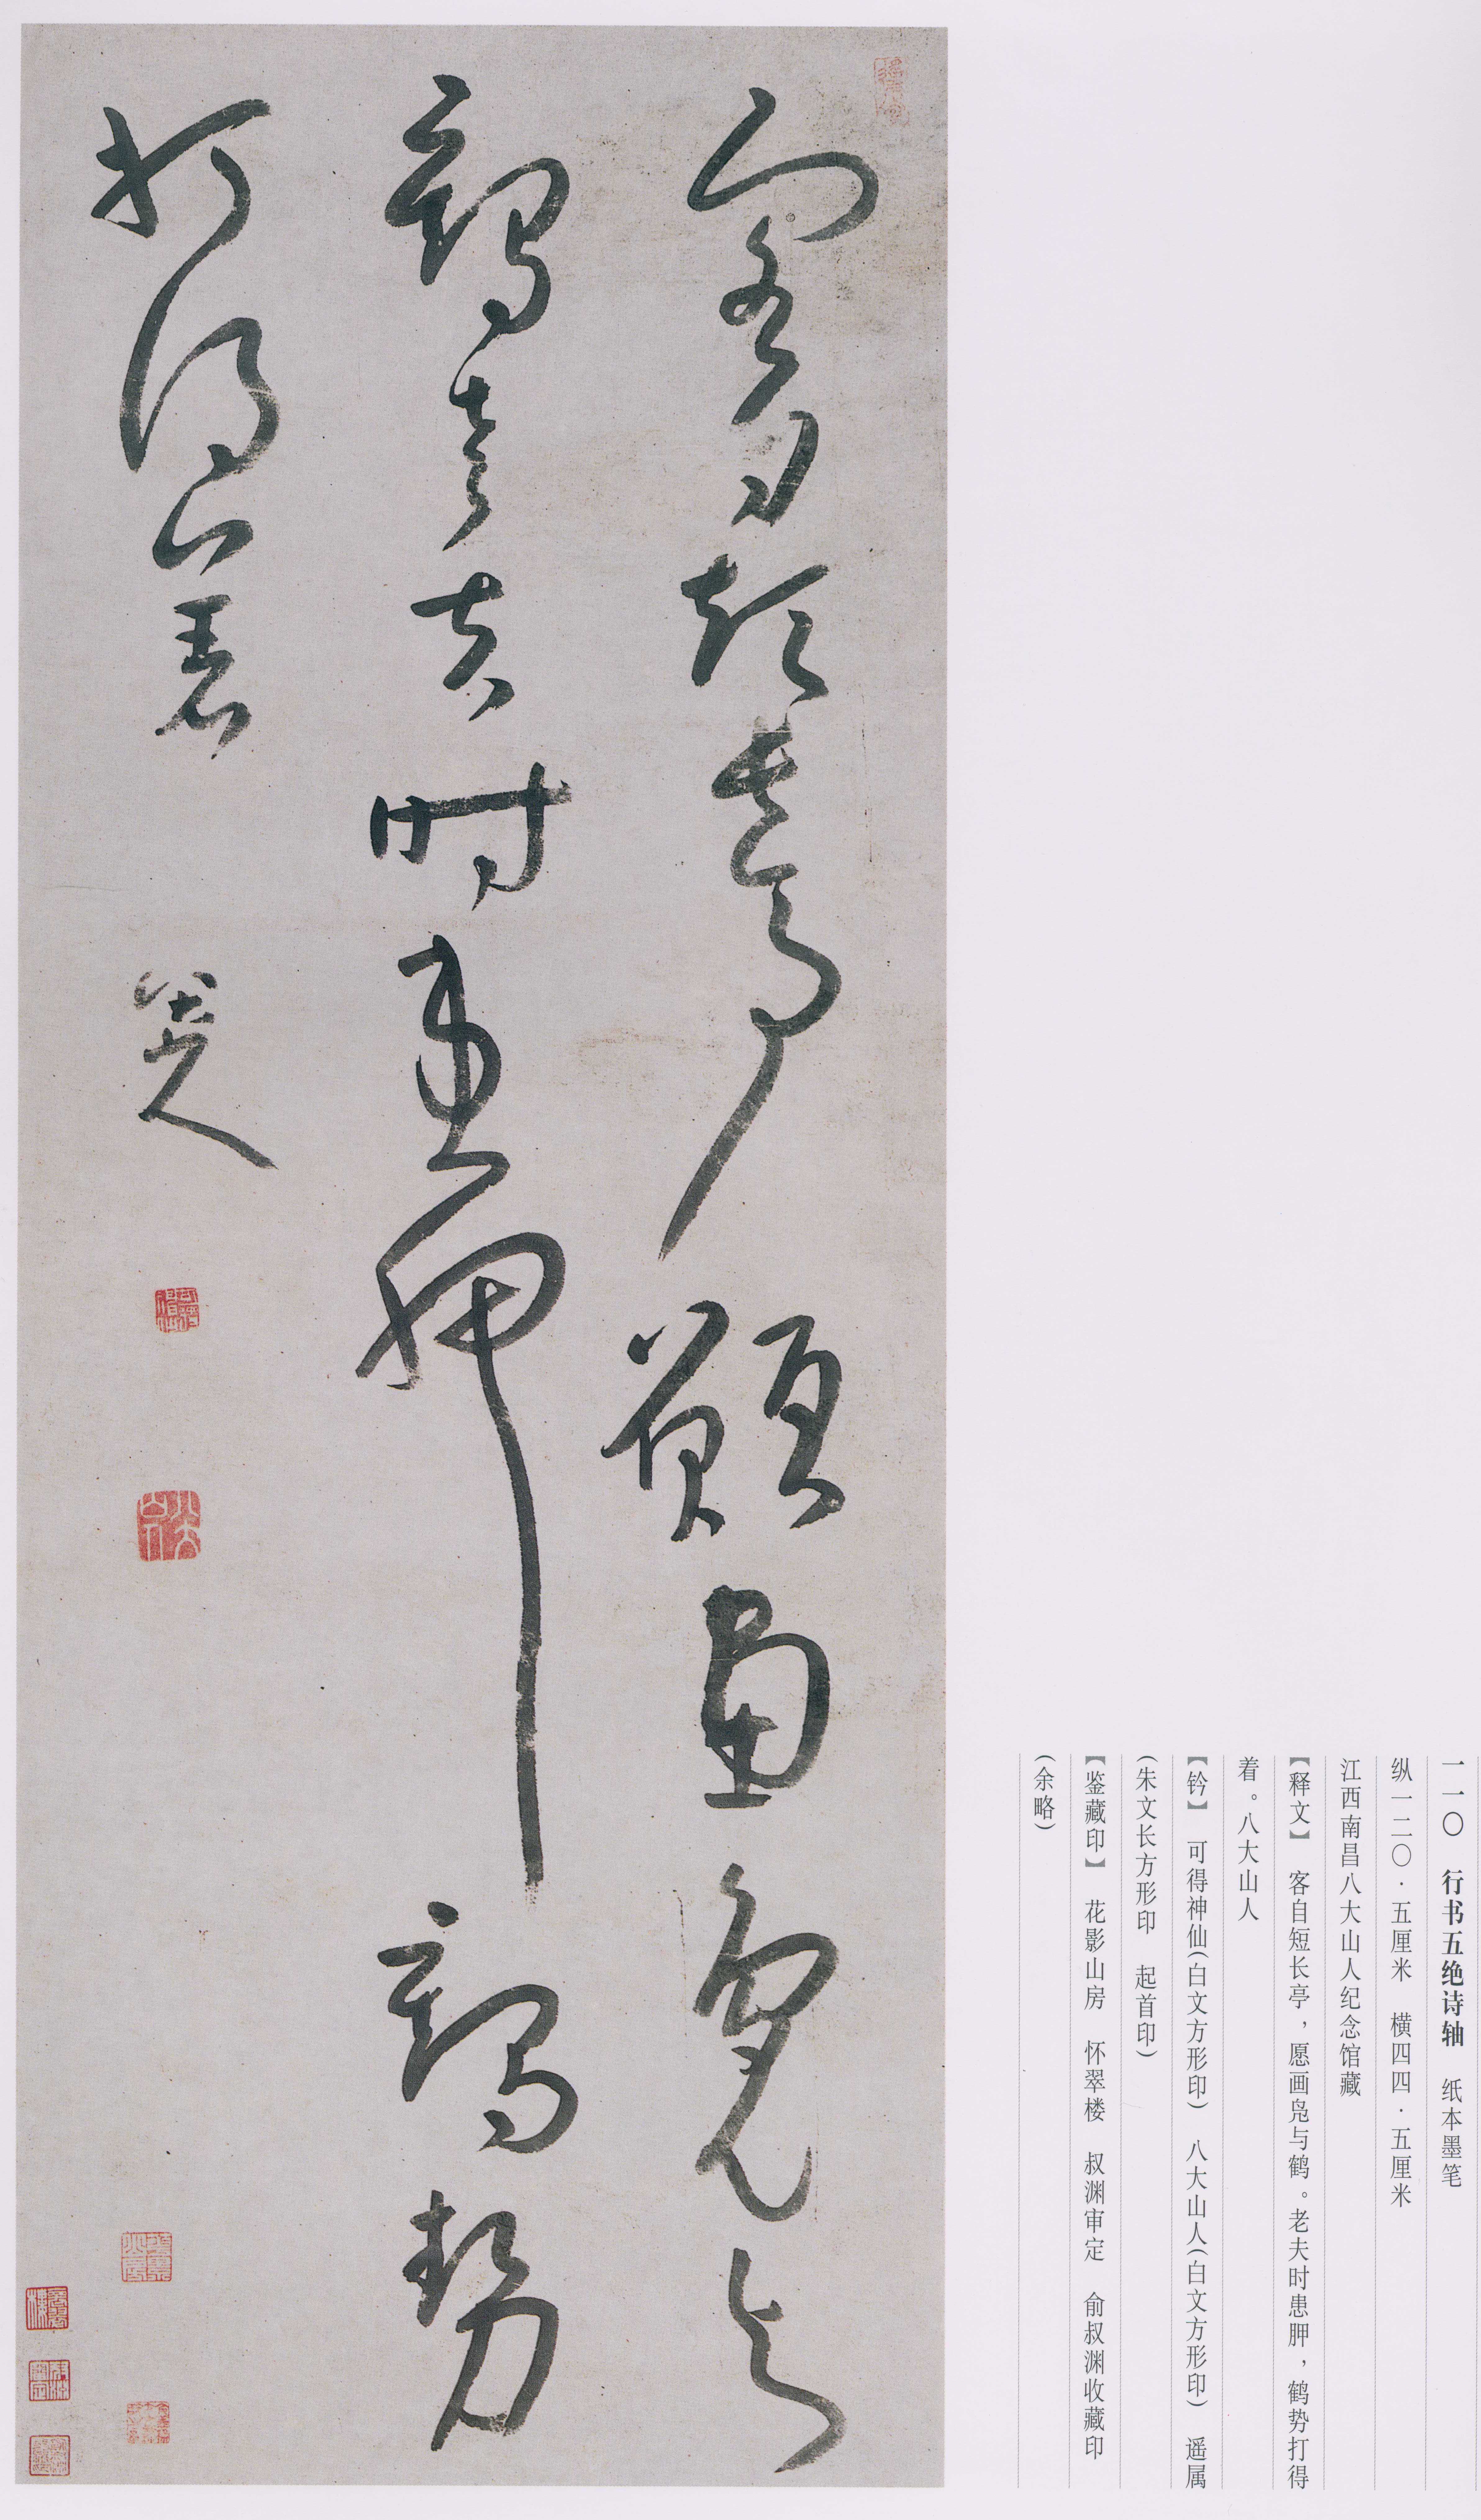 一一〇 行书五绝诗轴 纸本墨笔
纵一二〇·五厘米 横四四·五厘米
江西南昌八大山人纪念馆藏
【释文】 客自短长亭，愿画凫与鹤。老夫时患胛，鹤势打得
着。八大山人
【钤】 可得神仙(白文方形印) 八大山人(白文方形印) 遥属
(朱文长方形印 起首印)
【鉴藏印】 花影山房 怀翠楼 叔渊审定 俞叔渊收藏印
(余略)
客自短長亭願畫鳧与
鶴老夫時患胛鶴勢
打得着 八大山人
可得神仙
八大山人